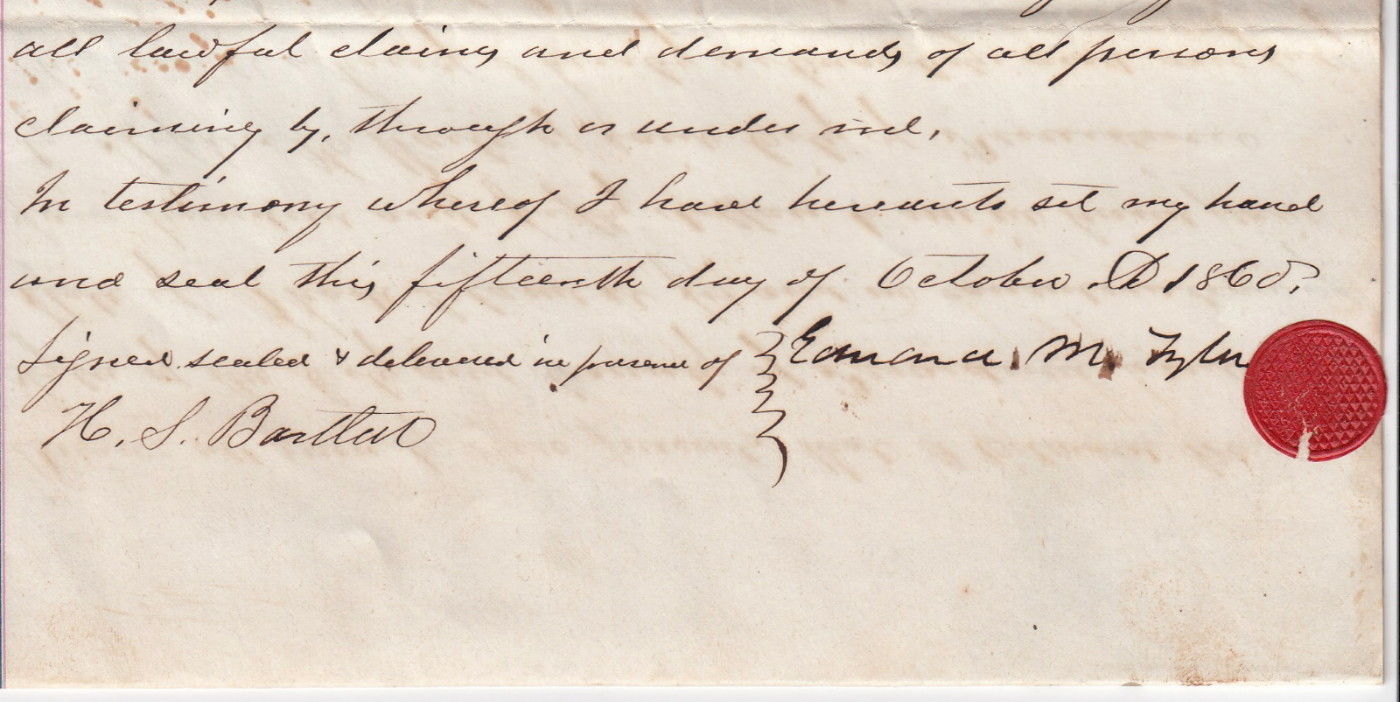 all lawful claims and demands of all persons
claiming by, through or under me.
In testimony whereof I have hereunto set my hand
and seal this fifteenth day of October AD 1860.
Signed sealed & delivered in presence of } Edmund M. Tyler
H. S. Bartlett